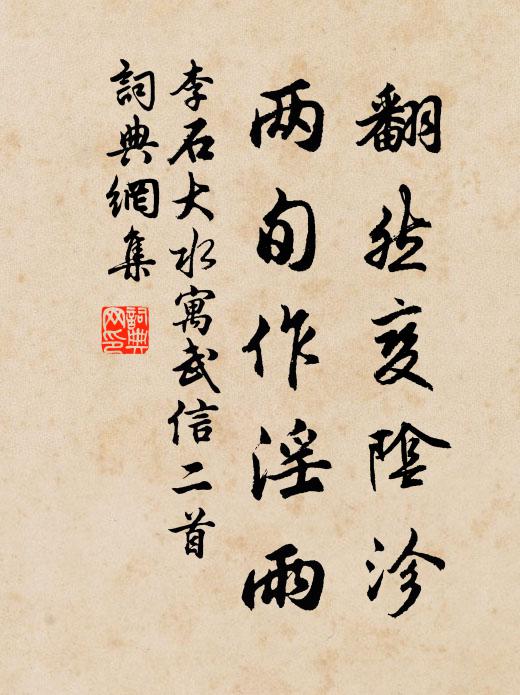 翻然变阴沴
两旬作淫雨
李石大水寓武信二首
詞典網集
詞典網印